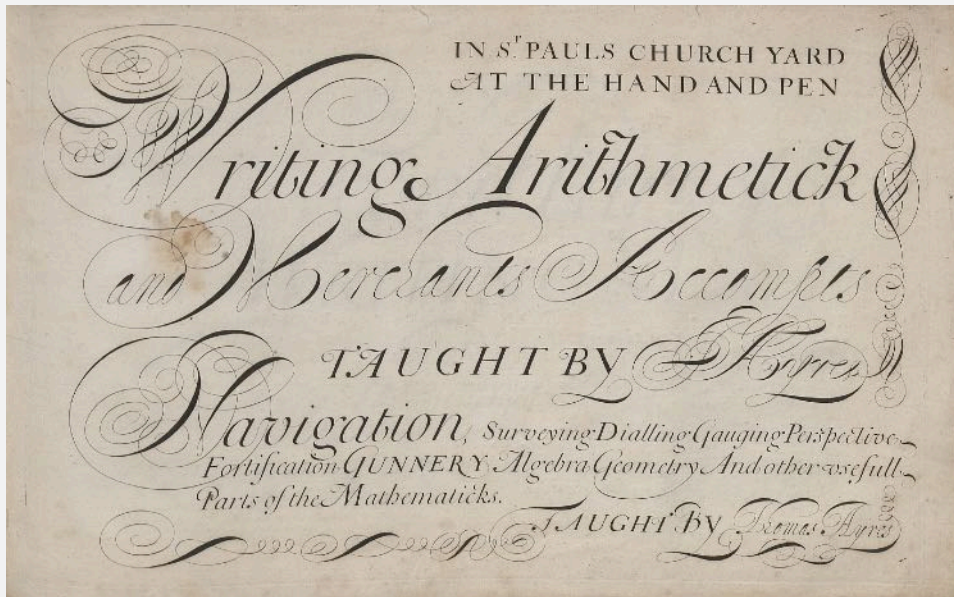 IN Sr. PAULS CHURCH YARD
AT THE HAND AND PEN
Writing Arithmetick
and Merchants Accompts
TAUGHT BY J Ayres
Navigation, Surveying Dialling Gauging Perspective
Fortification GUNNERY Algebra Geometry And other vsefull
Parts of the Mathematicks.
TAUGHT BY Thomas Ayres